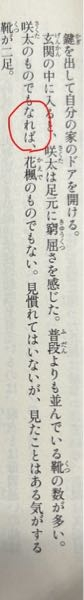 鍵を出して自分の家のドアを開ける。
玄関の中に入ると、咲太は足元に窮屈さを感じた。普段よりも並んでいる靴の数が多い。
咲太のものでもなれば、花楓のものでもない。見慣れてはいないが、見たことはある気がする
靴が二足。